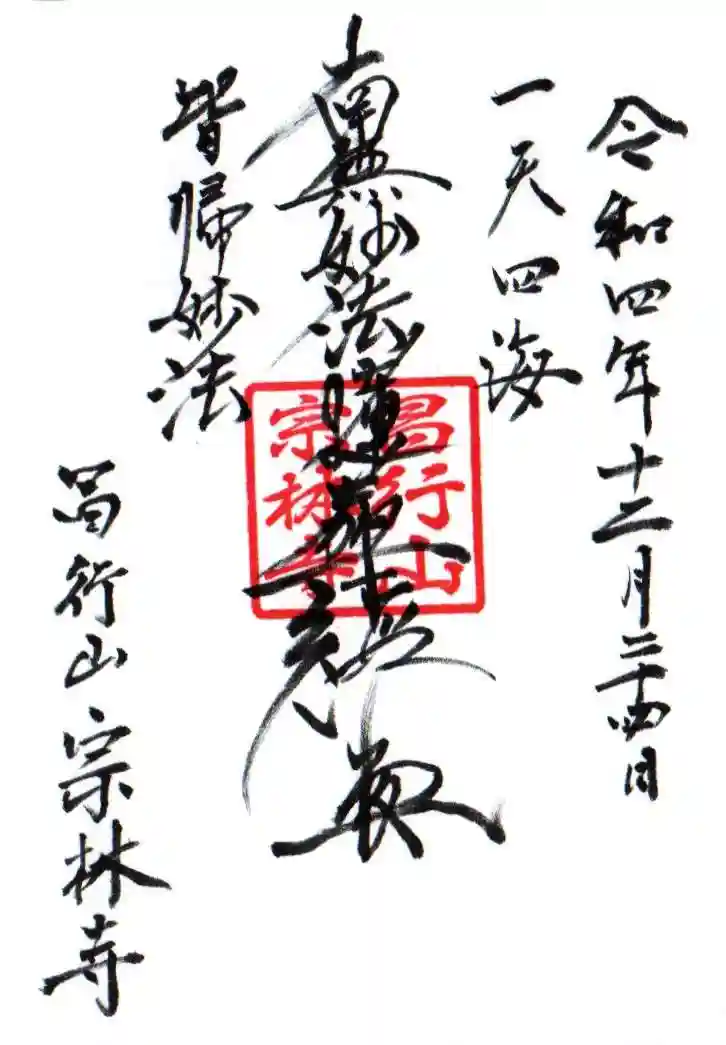 令和四年十二月二十四日
一天四海
南無妙法蓮華経
皆帰妙法
昌行山 宗林寺
昌行山
宗林寺